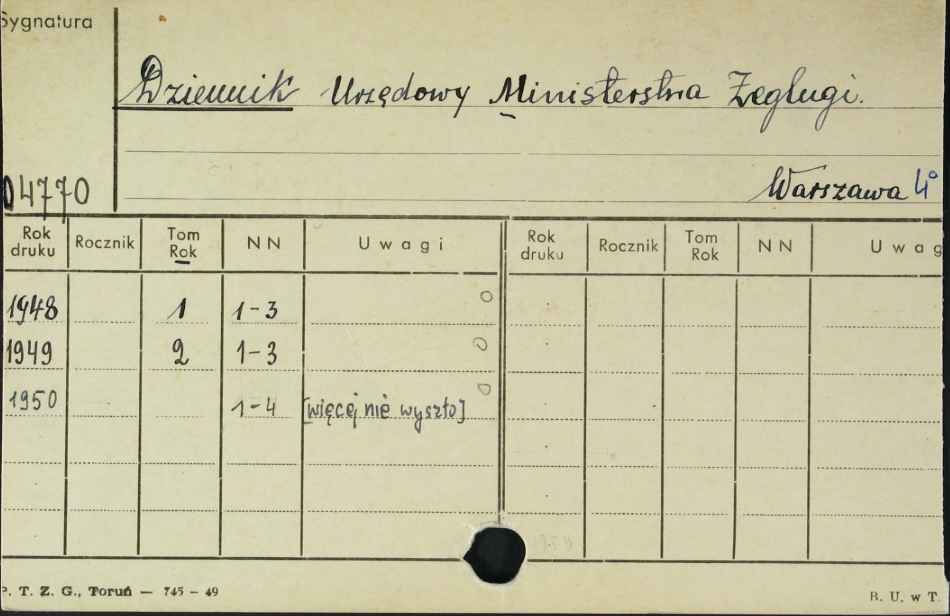 Sygnatura
Dziennik Urzędowy Ministerstwa Żeglugi.
04770
Warszawa 4°
Rok druku Rocznik Tom Rok NN Uwagi Rok druku Rocznik Tom Rok NN Uwag
1948 1 1-3
1949 2 1-3
1950 1-4 [więcej nie wyszło]
P. T. Z. G., Toruń — 745 - 49 B. U. w T.